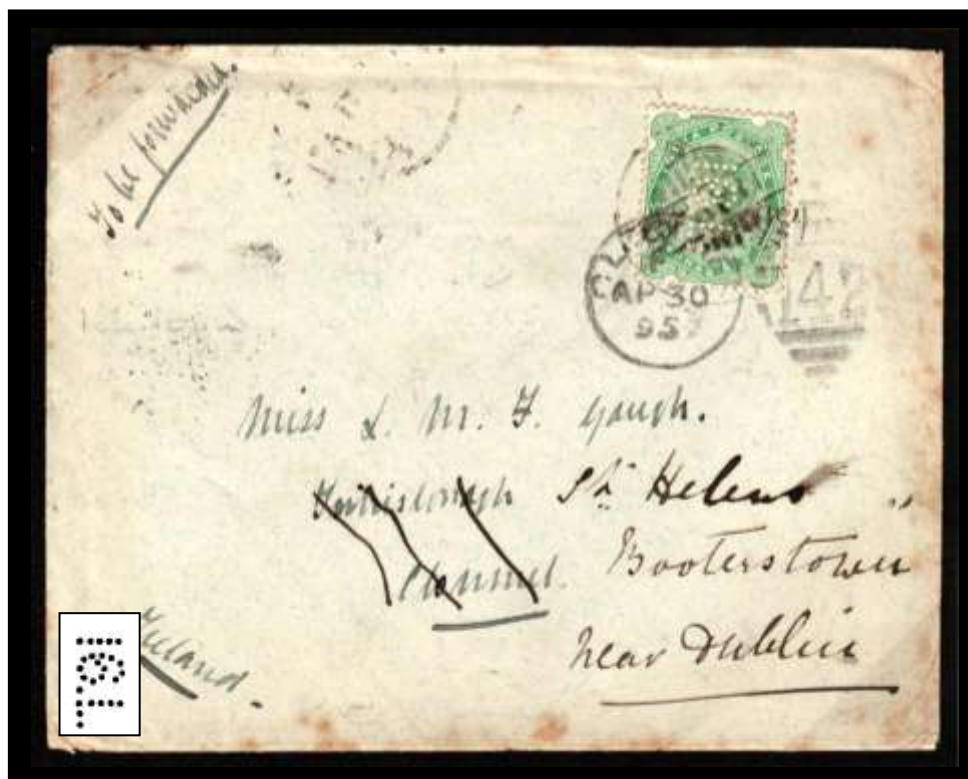 To be forwarded.
AP 30
95
142
Miss L. M. F. Gough.
St Helens
Clonmel. Booterstown
near Dublin
Ireland.